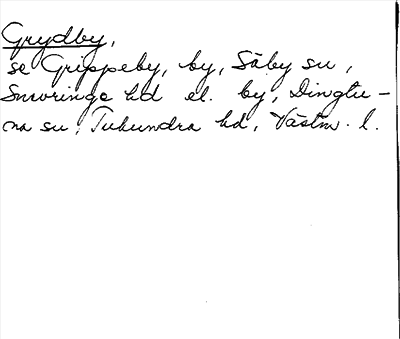 Grydby,
se Grippeby, by, Säby su,
Snevringe hd el. by, Dingtu-
na su, Tuhundra hd, Västm. l.